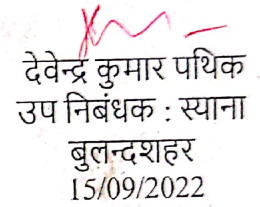 देवेन्द्र कुमार पथिक
उप निबंधक : स्याना
बुलन्दशहर
15/09/2022